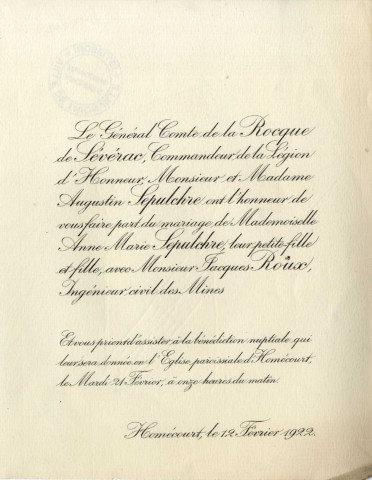 Le Général Comte de la Rocque
de Sévérac, Commandeur de la Légion
d'Honneur, Monsieur et Madame
Augustin Sepulchre ont l'honneur de
vous faire part du mariage de Mademoiselle
Anne Marie Sepulchre, leur petite-fille
et fille, avec Monsieur Jacques Roux,
Ingénieur civil des Mines
Et vous prient d'assister à la bénédiction nuptiale qui
leur sera donnée en l'Eglise paroissiale d'Homécourt,
le Mardi 21 Février, à onze heures du matin.
Homécourt, le 12 Février 1922.